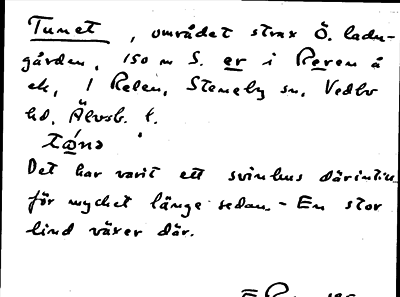 Tunet, området strax Ö. ladu-
gården, 150 m S. er i Reren å
ek, 1 Relen, Steneby sn, Vedbo
hd, Älvsb. l.
Det har varit ett svinhus därintill
för mycket länge sedan. - En stor
lind växer där.